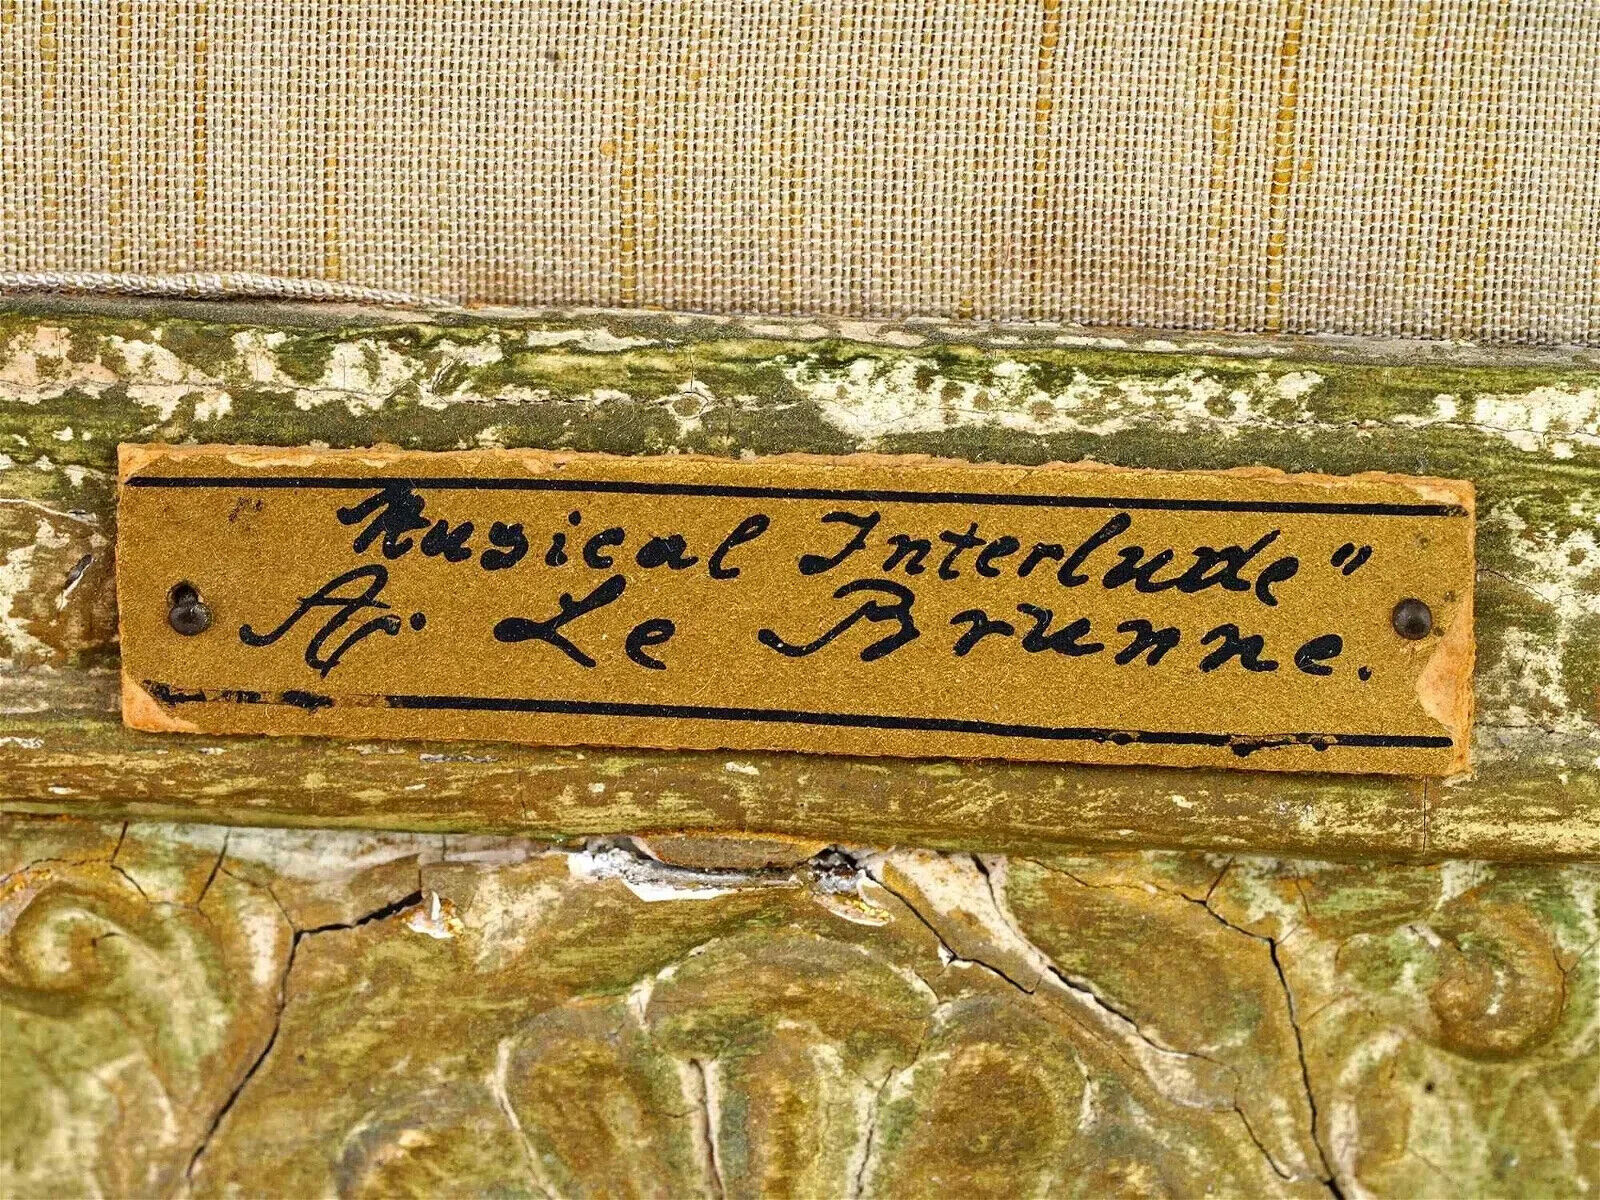 "Musical Interlude"
A. Le Brunne.